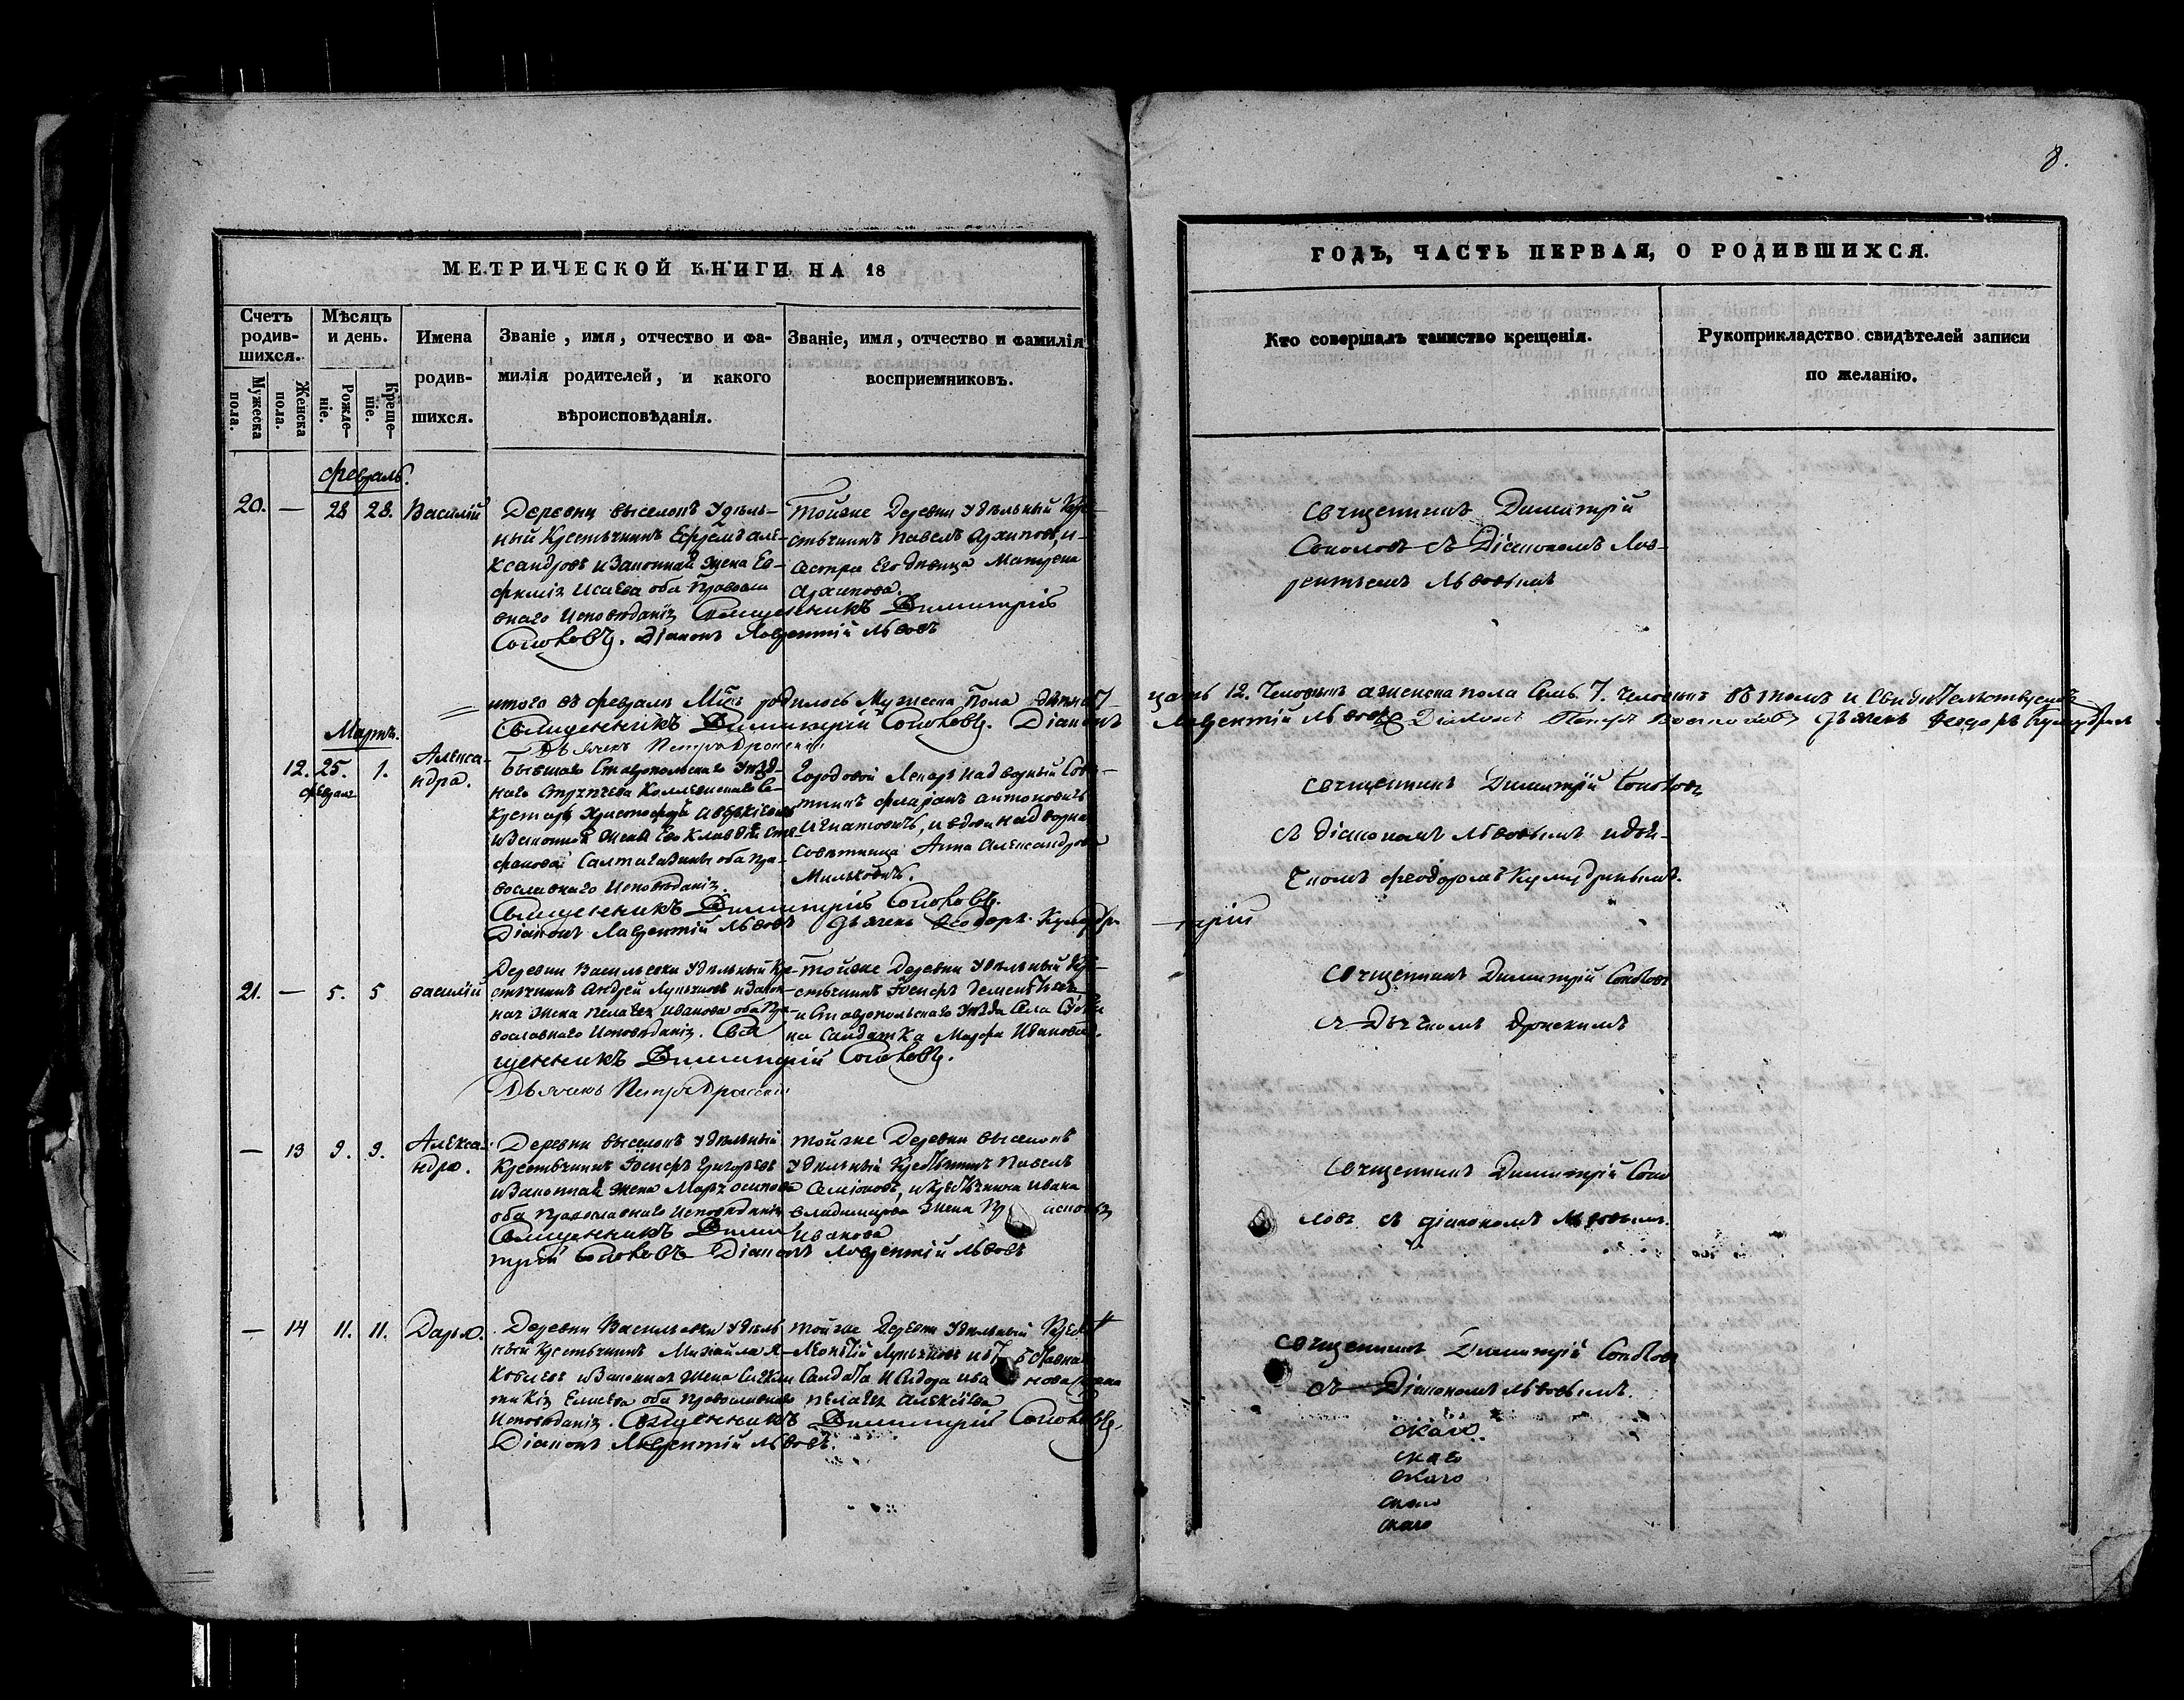 8.
МЕТРИЧЕСКОЙ КНИГИ НА 18
ГОДЪ, ЧАСТЬ ПЕРВАЯ, О РОДИВШИХСЯ.
Счетъ родив-шихся.
Мужеска пола.
Женска пола.
Мѣсяцъ и день.
Рожде-ніе.
Креще-ніе.
Имена
родив-
шихся.
Званіе, имя, отчество и фа-
милія родителей, и какого
вѣроисповѣданія.
Званіе, имя, отчество и фамилія
воспріемниковъ.
Кто совершалъ таинство крещенія.
Рукоприкладство свидѣтелей записи
по желанію.
Февраль.
20. — 28 28. Василій
Деревни выселокъ Удѣль-
ный Крестьянинъ Ефремъ Але-
ксандровъ и Законная жена Ев-
фимія Исаева оба Правосла
внаго Исповѣданія Священникъ Димитрій
Соколовъ. Діаконъ Лаврентій Львовъ
Тойже Деревни Удѣльный Кре-
стьянинъ Павелъ Архиповъ, и
сестра Его дѣвица Матрена
Архипова.
Священникъ Димитрій
Соколовъ съ Діакономъ Лав-
рентьемъ Львовымъ
итого въ февралѣ родилось Мужеска Пола двенат-
цать 12. Человѣкъ а женска пола Семь 7. Человѣкъ въ томъ и Свидѣтельствуемъ
Священникъ Димитрій Соколовъ. Діаконъ
Лаврентій Львовъ
Дьячекъ Ѳеодоръ
Дьячекъ Петръ
Мартъ.
12. 25. 1. Алекса-
ндра.
февраля
Бывшаго Ставропольскаго Уѣзд-
наго Стряпчева Коллежскаго Се-
кретаря Христофора
и Законной Жены Его Клавдіи Сте-
фановой оба пра-
вославнаго Исповѣданія.
Священникъ Димитрій Соколовъ.
Діаконъ Лаврентій Львовъ Дьячекъ Ѳеодоръ
Городовой Лекарь надворный Сове-
тникъ Антоновичъ
Игнатовичъ, и вдова надворна
Советница Анна Александрова
Милькович.
Священникъ Димитрій Соколовъ
съ Діакономъ Львовымъ и дья-
чкомъ Феодоромъ
21. — 5. 5 Василій
Деревни Васильевки Удѣльный Кре-
стьянинъ Андрей Лукьяновъ и Закон-
ная жена Пелагея Иванова оба Пра-
вославнаго Исповѣданія. Свя
щенникъ Димитрій Соколовъ.
Дьячекъ Петръ
Тойже Деревни Удѣльный Кре-
стьянинъ Іосифъ Дементьевъ
и Ставропольскаго Уѣзда Села
Солдатка Марфа Иванова.
Священникъ Димитрій Соколовъ
съ Дьячкомъ
— 13 9. 9. Алекса-
ндра.
Деревни выселокъ Удѣльный
Крестьянинъ Іосифъ Григорьевъ
и Законная жена Марья Осипова
оба Православнаго Исповѣданія
Священникъ Дими
трій Соколовъ Діаконъ Лаврентій Львовъ
Тойже Деревни выселокъ
Удѣльный Крестьянинъ Павелъ
Семіоновъ, и Крестьянина Ивана
Владимирова Жена
Иванова
Священникъ Димитрій Соко
ловъ съ діакономъ Львовымъ.
— 14 11. 11. Дарья.
Деревни Васильевки Удѣль
ный Крестьянинъ Михайла Я-
ковлевъ и Законная Жена
Елисева оба Православнаго
Исповѣданія. Священникъ Димитрій Соколовъ.
Діаконъ Лаврентій Львовъ.
Тойже Деревни Удѣльный Крест
Леонтій Лукьяновъ
Солдата Исидора Ива нова жена
Пелагея Алексѣева
Священникъ Димитрій Соколовъ
съ Діакономъ Львовымъ.
скаго
скаго
скаго
скаго
скаго